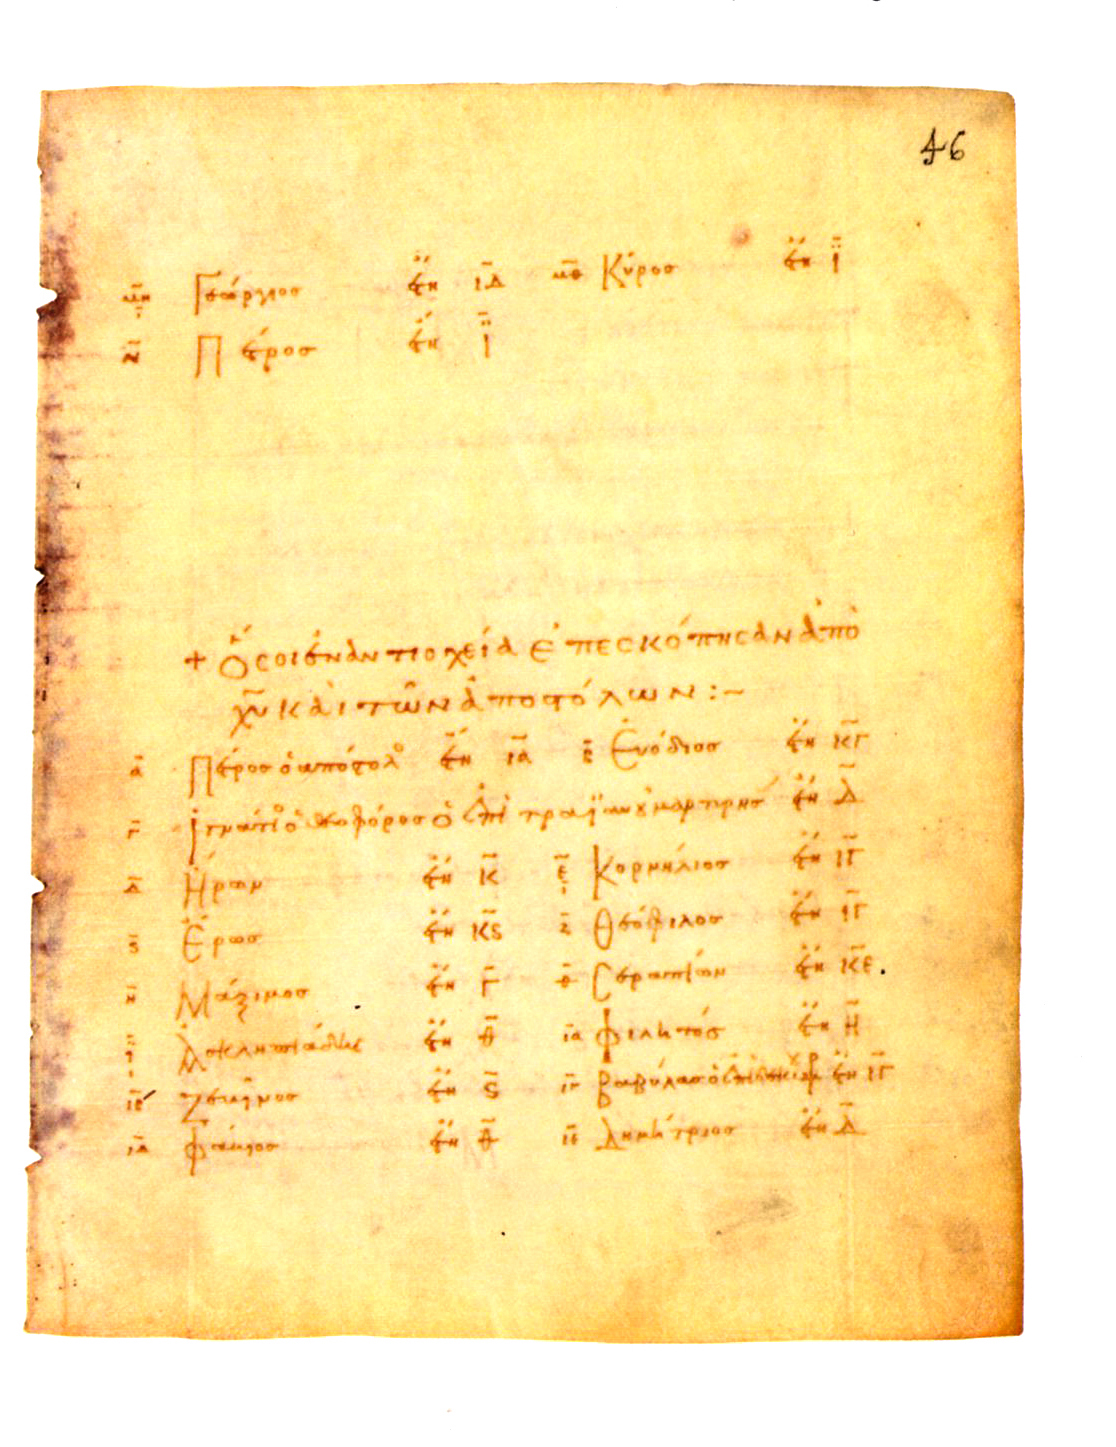 46
μη Γεώργιος ἔτη ιδ μθ Κύρος ἔτη ϊ
ν Πέτρος ἔτη ϊ
+ Ὅσοι ἐν ἀντιοχεία ἐπεσκόπησαν ἀπὸ
χυ καὶ τῶν ἀποστόλων :~
α Πέτρος ὁ απόστολ ἔτη ια β Ἐυόδιος ἔτη κγ
γ Ιγνάτι ὁ θεοφόρος ὁ ἐπὶ τραϊανου μαρτυρησ ἔτη δ
δ Ήρων ἔτη κ ε Κορνήλιος ἔτη ιγ
ς Έρως ἔτη κς ζ Θεόφιλος ἔτη ιγ
η Μάξιμος ἔτη γ θ Σεραπίων ἔτη κε
ι Ἀσκληπιάδης ἔτη θ ια Φιλητός ἔτη η
ιβ Ζεωῖνος ἔτη ς ιγ Βαβύλας ὁ ἐπὶ ἔτη ιγ
ιδ Φάβιος ἔτη θ ιε Δημήτριος ἔτη δ